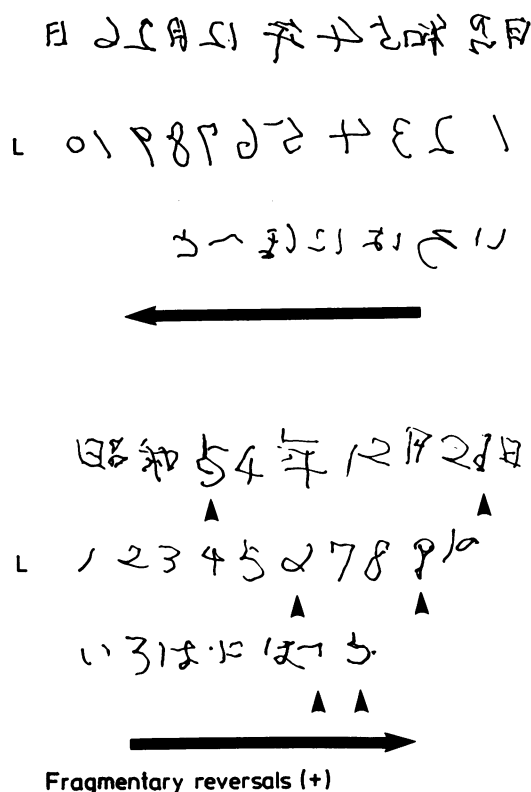 昭和54年12月26日
L 1 2 3 4 5 6 7 8 9 10
いろはにほへと
昭和54年12月26日
L 1 2 3 4 5 6 7 8 9 10
いろはにほへと
Fragmentary reversals (+)